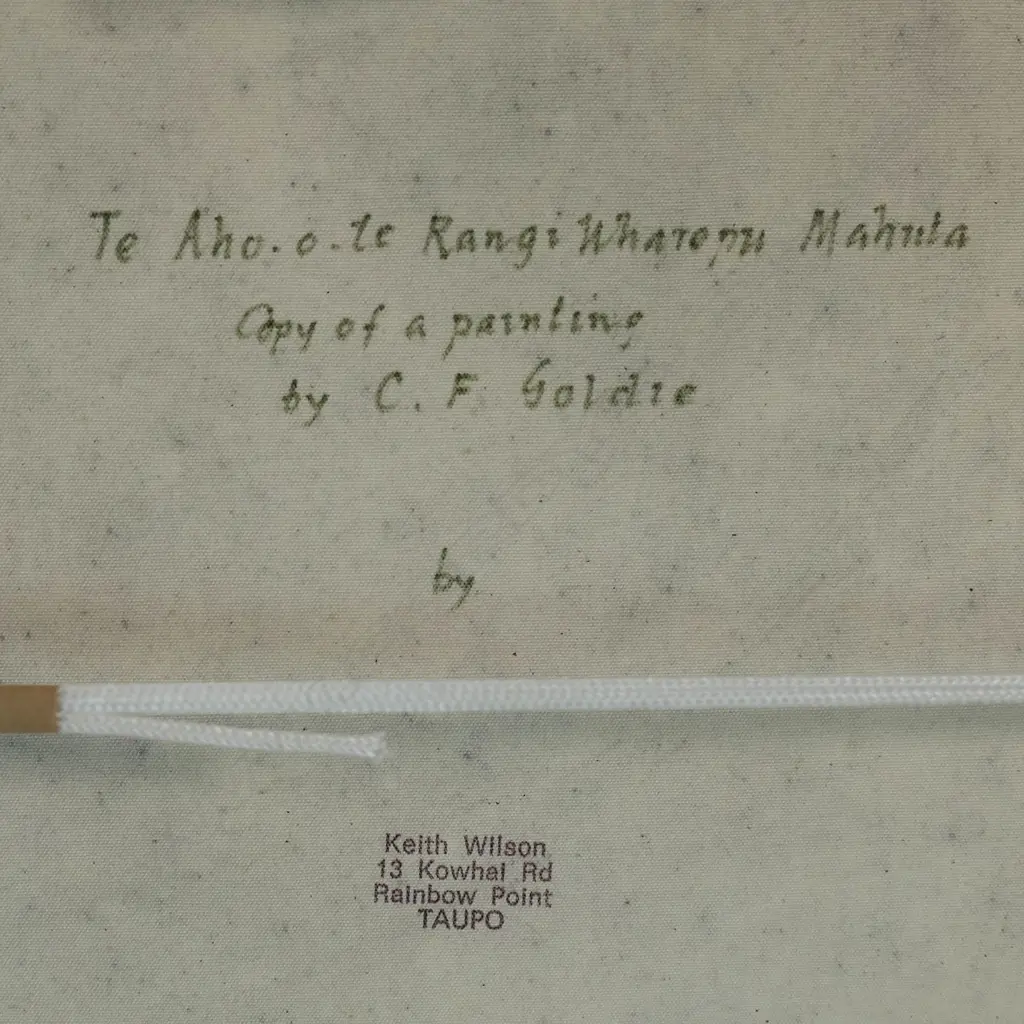 Te Aho.o.te Rangi Wharepu Mahuta
Copy of a painting
by C. F. Goldie
by
Keith Wilson
13 Kowhai Rd
Rainbow Point
TAUPO